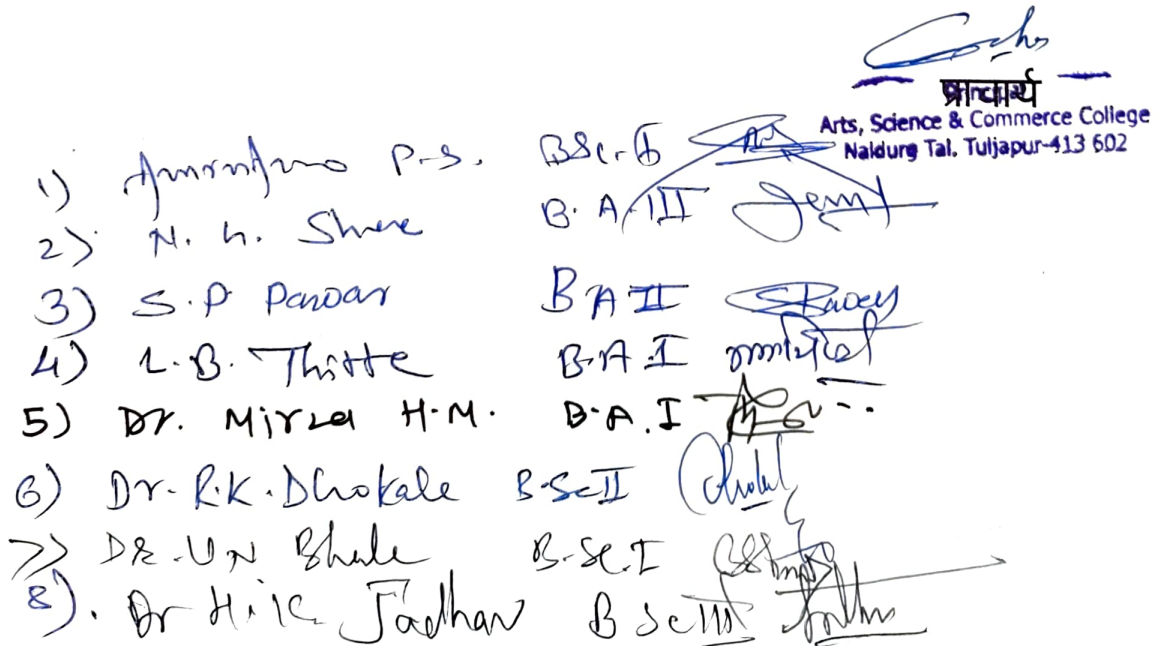 प्राचार्य
Arts, Science & Commerce College
Naldurg Tal. Tuljapur-413 602
1) P.S. BSc-I
2) N. G. B.A. III
3) S.P Pawar B A II
4) L.B. Thitte B.A.I
5) Dr. Mirza H.M. B.A.I
6) Dr. R.K. Dhokale B.Sc II
7) DR. UN Bhale B.Sc.I
8). Dr H.K. Jadhav B Sc III